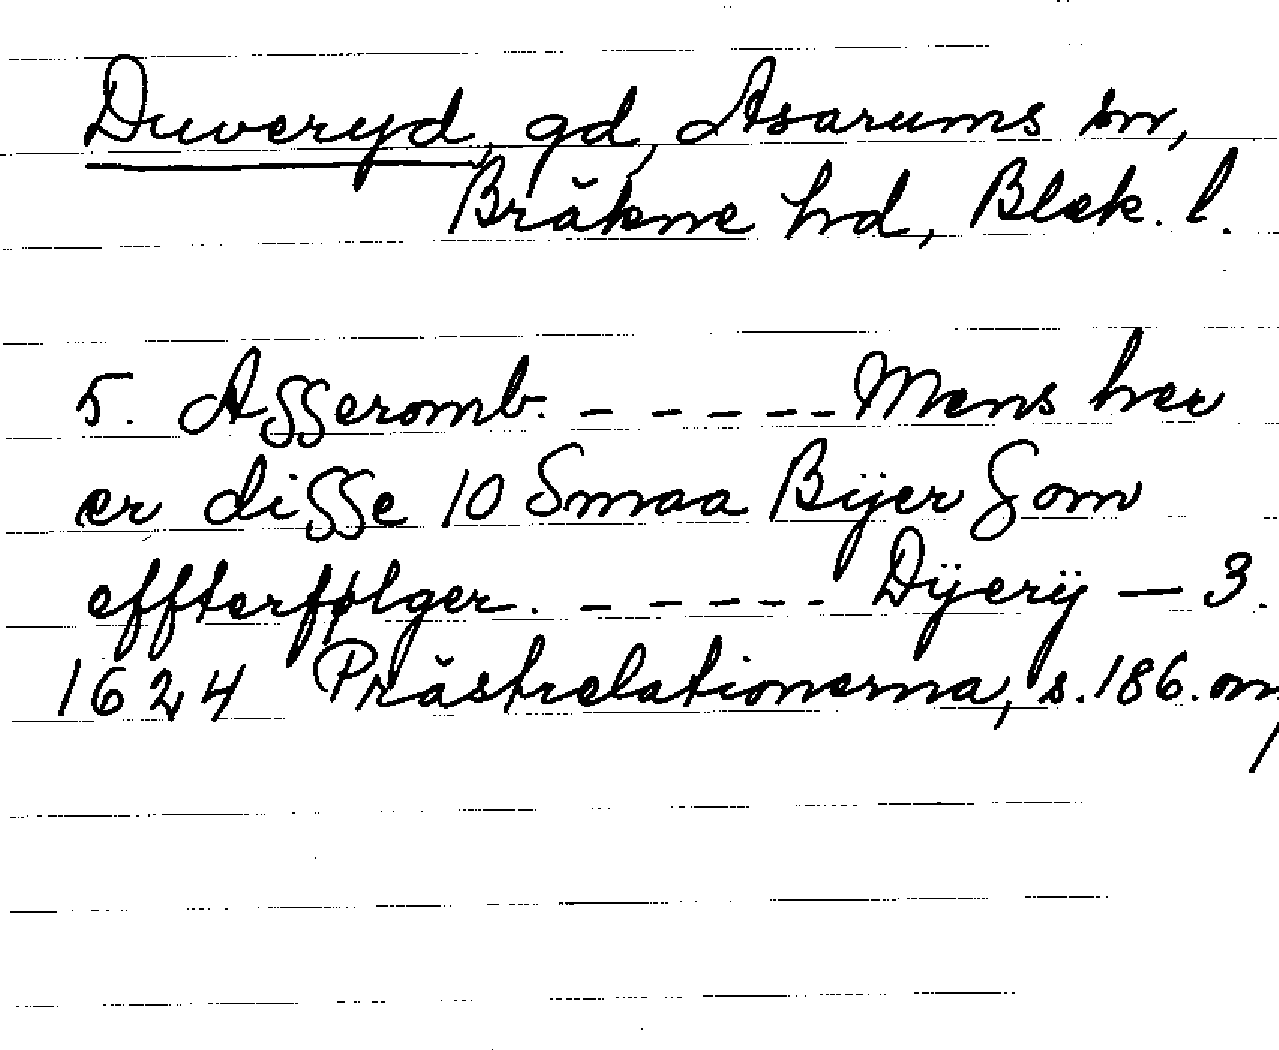 Duveryd, gd, Asarums sn,
Bräkne hd, Blek. l.
5. Asseromb. - - - - - - Mens her
er disse 10 Smaa Bÿer Som
effterfølger. - - - - - - Dÿerÿ — 3.
1624 Prästrelationerna, s. 186. om